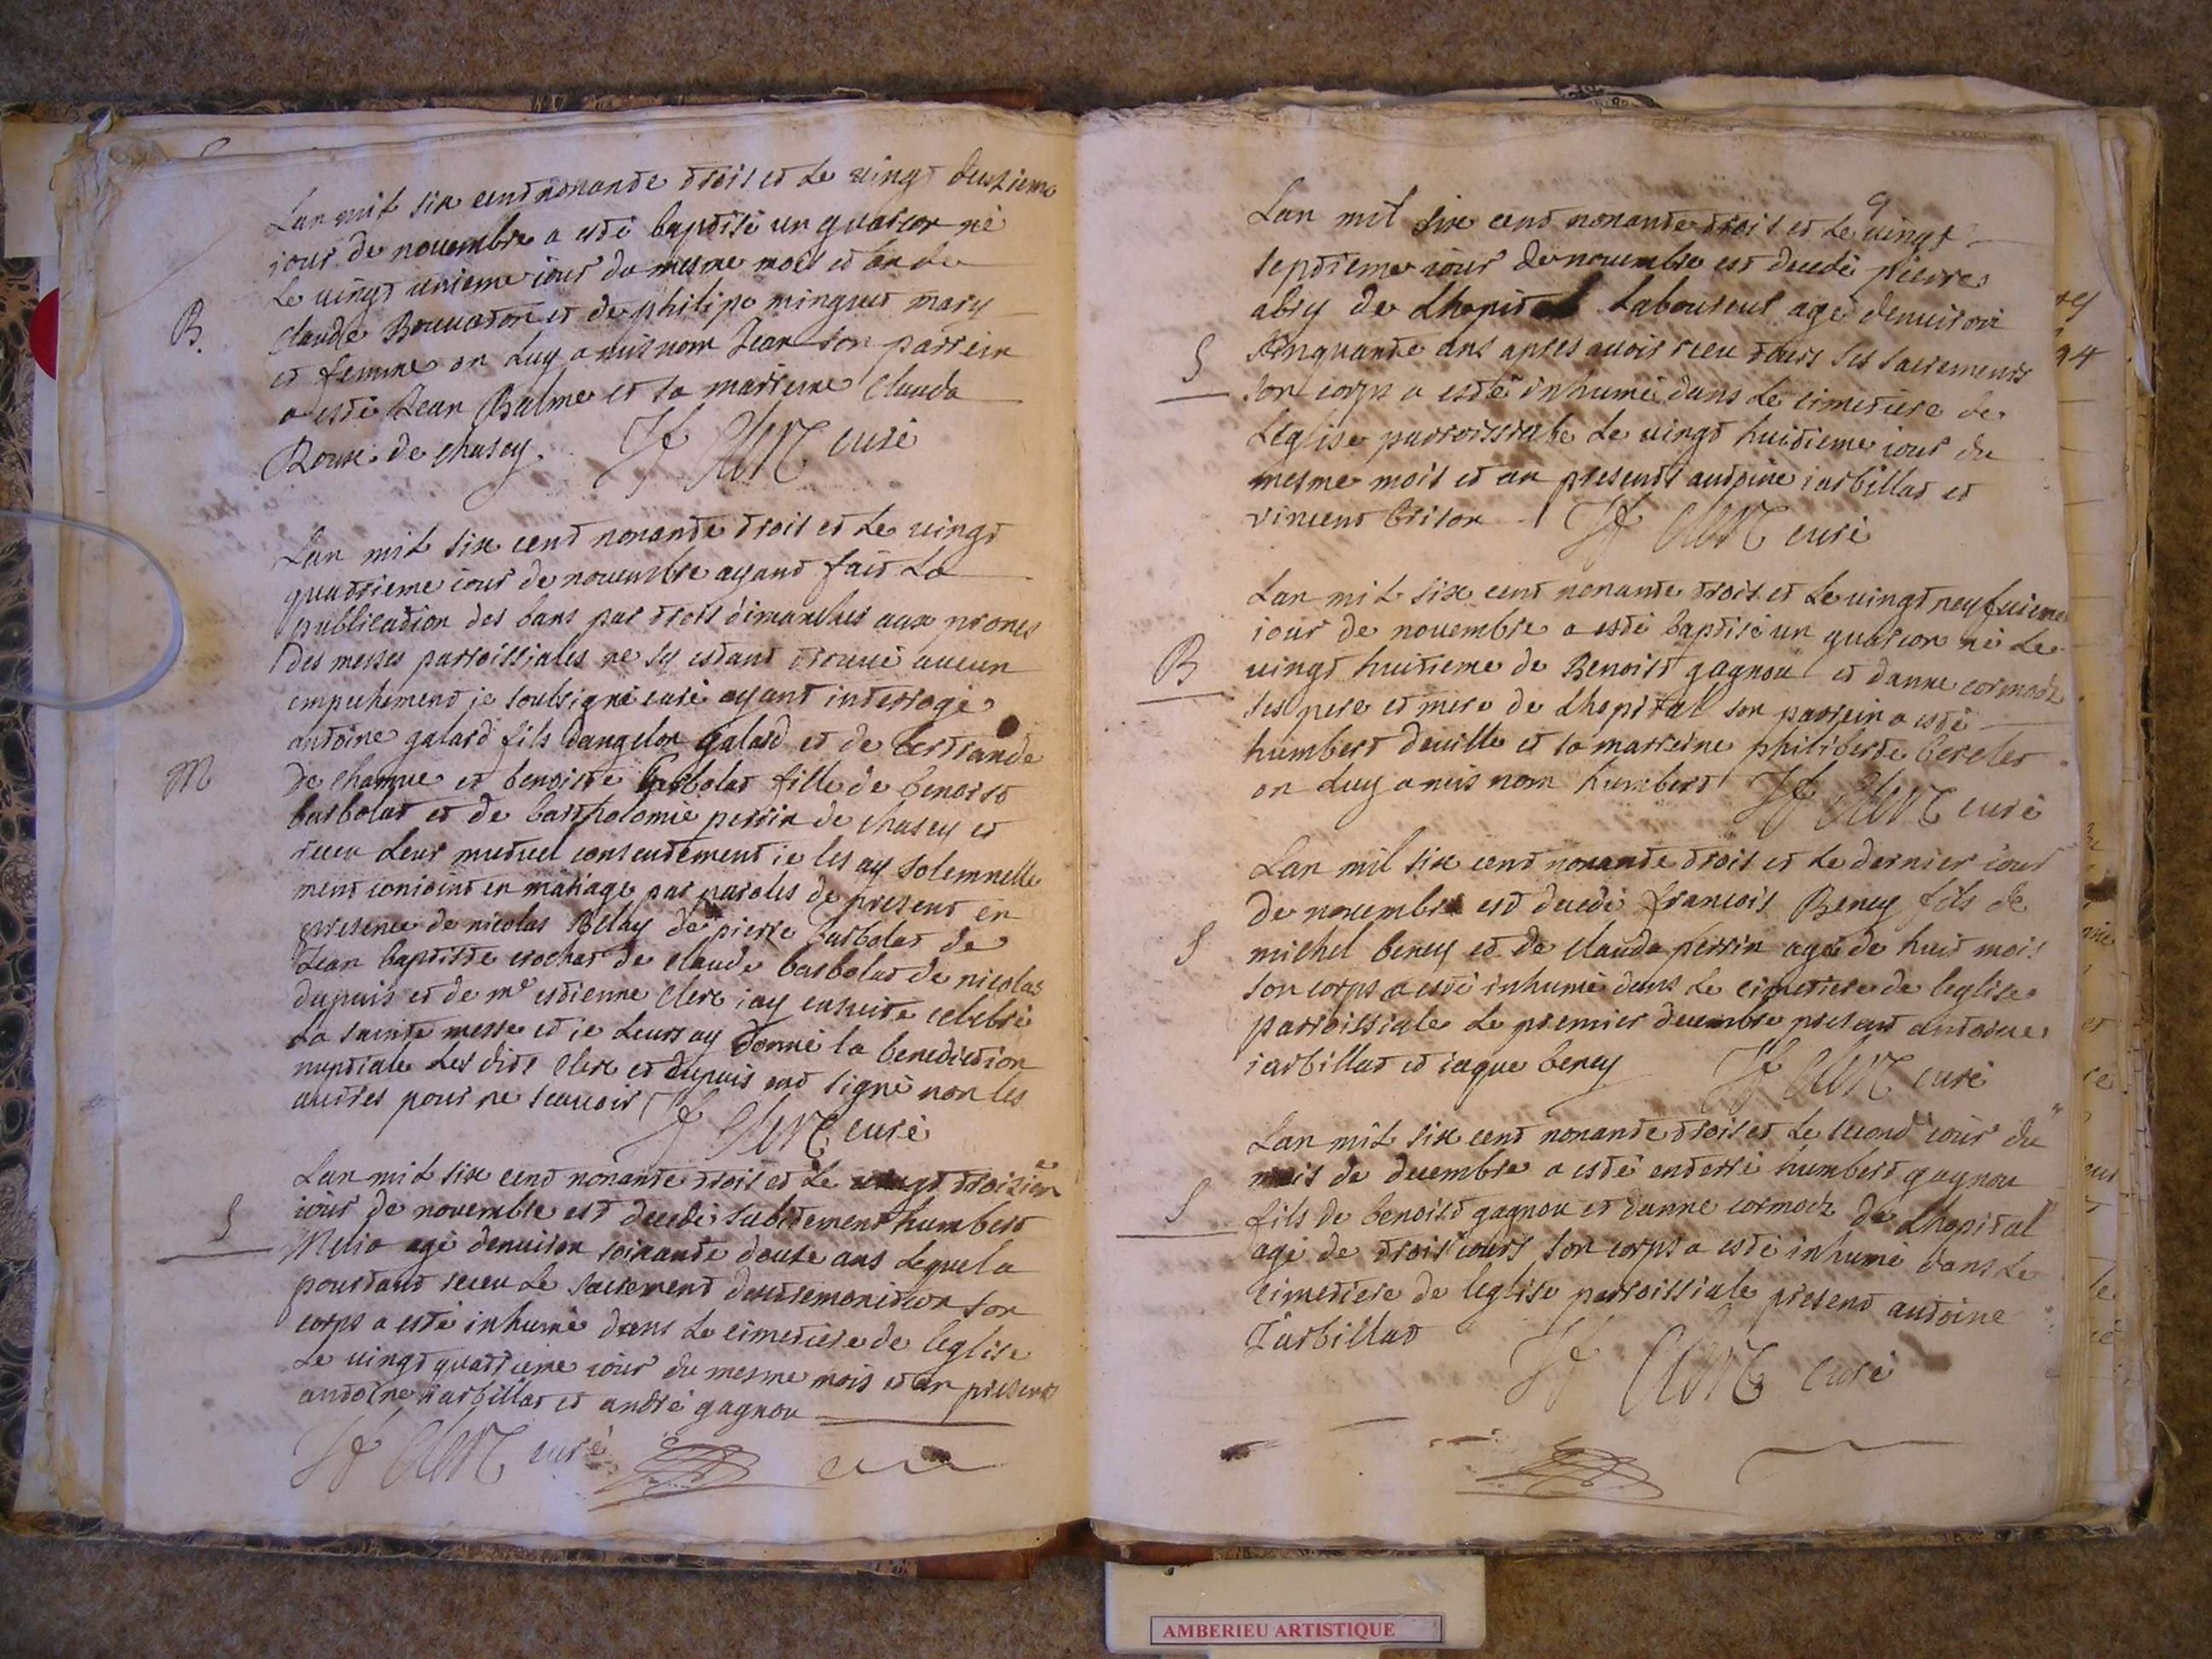 Lan mil six cent nonante trois et le vingt deuzieme
jour de novembre a esté baptisé un guarson né
le vingt unieme iour du mesme mois et an de
B.
claude Bouvaton et de philipe minguet mary
et femme on luy a mis nom Jean son parrein
a esté Jean Balme et sa marreine Clauda
Roux de chasey. Jf Clerc curé
Lan mil six cent nonante trois et le vingt
quatrieme iour de novembre ayant fait la
publication des bans par trois dimanches aux prones
des messes parroissiales ne sy estant trouvé aucun
empechement je soubsigné curé ayant interrogé
antoine galard fils dangelon galard et de bertrande
M
de chamue et benoiste barbolat fille de benoist
barbolat et de bartholomie perrin de chasey et
receu leur mutuel consentement ie les ay solemnelle
ment conioint en mariage par paroles de present en
presence de nicolas Belay de pierre barbolat de
Jean baptiste crochat de claude barbolat de nicolas
dupuis et de me estienne Clerc iay ensuite celebré
la sainte messe et ie leurs ay donné la benediction
nuptiale les dits Clerc et dupuis ont signé non les
autres pour ne scavoir Jf Clerc curé
Lan mil six cent nonante trois et le vingt troizieme
iour de novembre est decedé subitement humbert
S
Melio agé denviron soixante douse ans lequel a
pourtant receu le sacrement dextremonction son
corps a esté inhumé dans le cimetiere de leglise
le vingt quatrieme iour du mesme mois et an presents
antoine iarbillat et andré gagnou
Jf Clerc curé
9
Lan mil six cent nonante trois et le vingt
septieme iour de novembre est decedé pierre
abry de Lhopital Laboureur agé denviron
S
sinquante ans apres avoir receu tours ses sacrements
son corps a esté inhumé dans le cimetiere de
Leglise parroissiale le vingt huitieme iour du
mesme mois et an presents antoine iarbillat et
vincent brison Jf Clerc curé
Lan mil six cent nonante trois et le vingt neufvieme
iour de novembre a esté baptisé un guarson né le
B
vingt huitieme de Benoist gagnou et danne cormoz
ses pere et mere de Lhopital son parrein a esté
humbert deville et sa marreine philiberte bereter
on luy a mis nom humbert Jf Clerc curé
Lan mil six cent nonante trois et le dernier iour
de novembre est decedé francois Beney fils de
S
michel beney et de clauda perrin agé de huit mois
son corps a esté inhumé dans le cimetiere de leglise
parroissiale le premier decembre present antoine
iarbillat et iaque beney Jf Clerc curé
Lan mil six cent nonante trois et le second iour du
mois de decembre a esté enterré humbert gagnou
S
fils de benoist gagnou et danne cormoz de Lhopital
agé de trois iours son corps a esté inhumé dans le
cimetiere de leglise parroissiale present antoine
Iarbillat Jf Clerc curé
AMBERIEU ARTISTIQUE